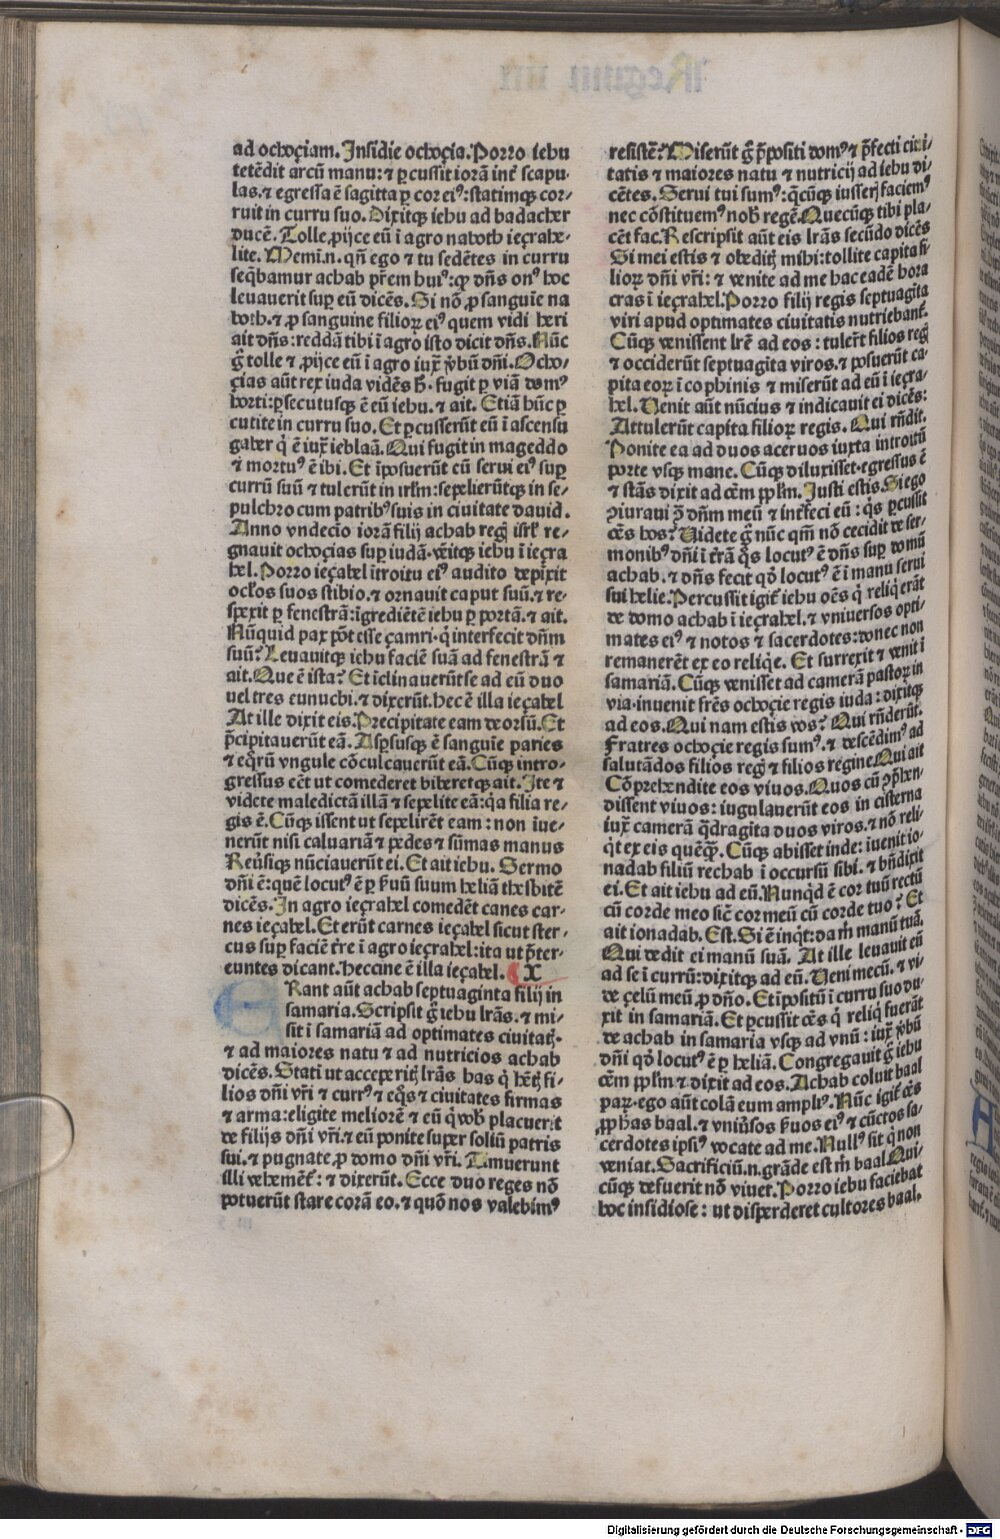 ad ochoçiam. Insidie ochoçia. Porro iehu
tetēdit arcū manu: ⁊ ꝑcussit iorā int̄ scapu/
las. ⁊ egressa ē sagitta ꝑ cor eiꝰ: statimqꝫ cor/
ruit in curru suo. Dixitqꝫ iehu ad badacher
ducē. Tolle, ꝓijce eū ī agro naboth ieçrahe/
lite. Memi.n. qn̄ ego ⁊ tu sedētes in curru
seq̄bamur achab pr̄em huiꝰ: ꝙ dn̄s onꝰ hoc
leuauerit suꝑ eū dicēs. Si nō ꝓ sanguīe na
both. ⁊ ꝓ sanguine filioꝝ eiꝰ quem vidi heri
ait dn̄s: reddā tibi ī agro isto dicit dn̄s. Nūc
g̊ tolle ⁊ ꝓijce eū ī agro iux̄ v̄bū dn̄i. Ocho/
çias aūt rex iuda vidēs h̄. fugit ꝑ viā domꝰ
horti: ꝑsecutusqꝫ ē eū iehu. ⁊ ait. Etiā hūc ꝑ
cutite in curru suo. Et ꝑcusserūt eū ī ascensu
gaber q̇ ē iux̄ ieblaā. Qui fugit in mageddo
⁊ mortuꝰ ē ibi. Et īposuerūt eū serui eiꝰ suꝑ
currū suū ⁊ tulerūt in irl̄m: sepelierūtqꝫ in se/
pulchro cum patribꝰ suis in ciuitate dauid.
Anno vndecīo iorā filij achab regꝭ isrl̄ re/
gnauit ochoçias suꝑ iudā. v̄eitqꝫ iehu ī ieçra
hel. Porro ieçabel ītroitu eiꝰ audito depīxit
ocl̓os suos stibio. ⁊ ornauit caput suū. ⁊ re/
spexit ꝑ fenestrā: īgrediētē iehu ꝑ portā. ⁊ ait.
Nūquid pax pōt esse çamri. q̇ interfecit dn̄m
suū? Leuauitqꝫ iehu faciē suā ad fenestrā ⁊
ait. Que ē ista? Et īclinauerūt se ad eū duo
uel tres eunuchi. ⁊ dixerūt. hec ē illa ieçabel
At ille dixit eis. Precipitate eam deorsū. Et
p̄cipitauerūt eā. Asꝑsusqꝫ ē sanguīe paries
⁊ eq̄rū vngule cōculcauerūt eā. Cūqꝫ intro/
gressus eēt ut comederet biberetqꝫ ait. Ite ⁊
videte maledictā illā ⁊ sepelite eā: q̄a filia re/
gis ē. Cūqꝫ issent ut sepelirēt eam: non īue/
nerūt nisi caluariā ⁊ pedes ⁊ sūmas manus
Reu̓siqꝫ nūciauerūt ei. Et ait iehu. Sermo
dn̄i ē: quē locutꝰ ē ꝑ s̓uū suum heliā thesbitē
dicēs. In agro ieçrahel comedēt canes car/
nes ieçabel. Et erūt carnes ieçabel sicut ster/
cus suꝑ faciē t̄re ī agro ieçrahel: ita ut p̄ter/
euntes dicant. heccine ē illa ieçabel. X
ERant aūt achab septuaginta filij in
samaria. Scripsit g̊ iehu lr̄as. ⁊ mi/
sit ī samariā ad optimates ciuitatꝭ.
⁊ ad maiores natu ⁊ ad nutricios achab
dicēs. Stati ut acceperitꝭ lr̄as has q̇ hētꝭ fi/
lios dn̄i vr̄i ⁊ currꝰ ⁊ eq̊s ⁊ ciuitates firmas
⁊ arma: eligite meliorē ⁊ eū q̇ vob̄ placuerit
de filijs dn̄i vr̄i. ⁊ eū ponite super soliū patris
sui. ⁊ pugnate ꝓ domo dn̄i vr̄i. Timuerunt
illi vehemēt̄: ⁊ dixerūt. Ecce duo reges nō
potuerūt stare corā eo. ⁊ quō nos valebimꝰ
resistē? Miserūt g̊ p̄positi domꝰ ⁊ p̄fecti ciui
tatis ⁊ maiores natu ⁊ nutricij ad iehu di/
cētes. Serui tui sumꝰ: q̄cūqꝫ iusserꝭ faciemꝰ
nec cōstituemꝰ nob̄ regē. Quecūqꝫ tibi pla/
cēt fac. Rescripsit aūt eis lr̄as secūdo dicēs
Si mei estis ⁊ obeditꝭ mihi: tollite capita fi
lioꝝ dn̄i vr̄i: ⁊ venite ad me hac eadē hora
cras ī ieçrahel. Porro filij regis septuagīta
viri apud optimates ciuitatis nutriebant̄.
Cūqꝫ venissent lr̄e ad eos: tuler̄t filios regꝭ
⁊ occiderūt septuagīta viros. ⁊ posuerūt ca/
pita eoꝝ ī cophinis ⁊ miserūt ad eū ī ieçra/
hel. Venit aūt nūcius ⁊ indicauit ei dicēs:
Attulerūt capita filioꝝ regis. Qui rn̄dit.
Ponite ea ad duos aceruos iuxta introitū
porte vsqꝫ mane. Cūqꝫ diluxisset. egressus ē
⁊ stās dixit ad oēm ppl̄m. Justi estis. Si ego
ꝯiuraui ꝯ̄ dn̄m meū ⁊ int̄feci eū: q̇s ꝑcussit
oēs hos? Videte g̊ nūc qm̄ nō cecidit de ser/
monibꝰ dn̄i ī t̄rā q̊s locutꝰ ē dn̄s suꝑ domū
achab. ⁊ dn̄s fecit qd̓ locutꝰ ē ī manu serui
sui helie. Percussit igit̄ iehu oēs q̇ reliq̇ erāt
de domo achab ī ieçrahel. ⁊ vniuersos opti/
mates eiꝰ ⁊ notos ⁊ sacerdotes: donec non
remanerēt ex eo reliq̇e. Et surrexit ⁊ venit ī
samariā. Cūqꝫ venisset ad camerā pastoꝝ in
via. inuenit fr̄es ochoçie regis iuda: dixitqꝫ
ad eos. Qui nam estis vos? Qui rn̄derūt.
Fratres ochoçie regis sumꝰ. ⁊ descēdimꝰ ad
salutādos filios regꝭ ⁊ filios regine. Qui ait
Cōprehendite eos viuos. Quos cū ꝯp̄hen/
dissent viuos: iugulauerūt eos in cisterna
iux̄ camerā q̄dragīta duos viros. ⁊ nō reli/
q̇t ex eis quēq̄ꝫ. Cūqꝫ abisset inde: iuenit io/
nadab filiū rechab ī occursū sibi. ⁊ bn̄dixit
ei. Et ait iehu ad eū. Nunq̇d ē cor tuū rectū
cū corde meo sic̄ cor meū cū corde tuo? Et
ait ionadab. Est. Si ē inq̇t: da m̄ manū tuā.
Qui dedit ei manū suā. At ille leuauit eū
ad se ī currū: dixitqꝫ ad eū. Veni mecū. ⁊ vi/
de çelū meū ꝓ dn̄o. Et īpositū ī curru suo du/
xit in samariā. Et ꝑcussit oēs q̇ reliq̇ fuerāt
de achab in samaria vsqꝫ ad vnū: iux̄ v̄bū
dn̄i qd̓ locutꝰ ē ꝑ heliā. Congregauit g̊ iehu
oēm ppl̄m ⁊ dixit ad eos. Achab coluit baal
paꝝ. ego aūt colā eum ampliꝰ. Nūc igit̄ oēs
ꝓphas baal. ⁊ vniu̓sos s̓uos eiꝰ ⁊ cūctos sa/
cerdotes ipsiꝰ vocate ad me. Nullꝰ sit q̇ non
veniat. Sacrificiū.n. grāde est m̄ baal. Qui/
cūqꝫ defuerit nō viuet. Porro iehu faciebat
hoc insidiose: ut disperderet cultores baal.
Digitalisierung gefördert durch die Deutsche Forschungsgemeinschaft - DFG